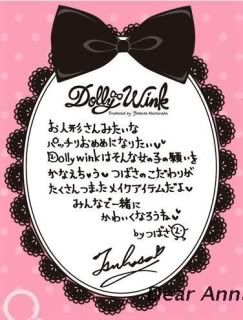 Dolly Wink
Produced by Tsubasa Masuwaka
お人形さんみたいな
パッチリおめめになりたい♡
Dolly winkはそんな女の子の願いを
かなえちゃう♡つばさのこだわりが
たくさんつまったメイクアイテムだよ
みんなで一緒に
かわいくなろうね♡
byつばさ
Tsubasa
Dear Ann